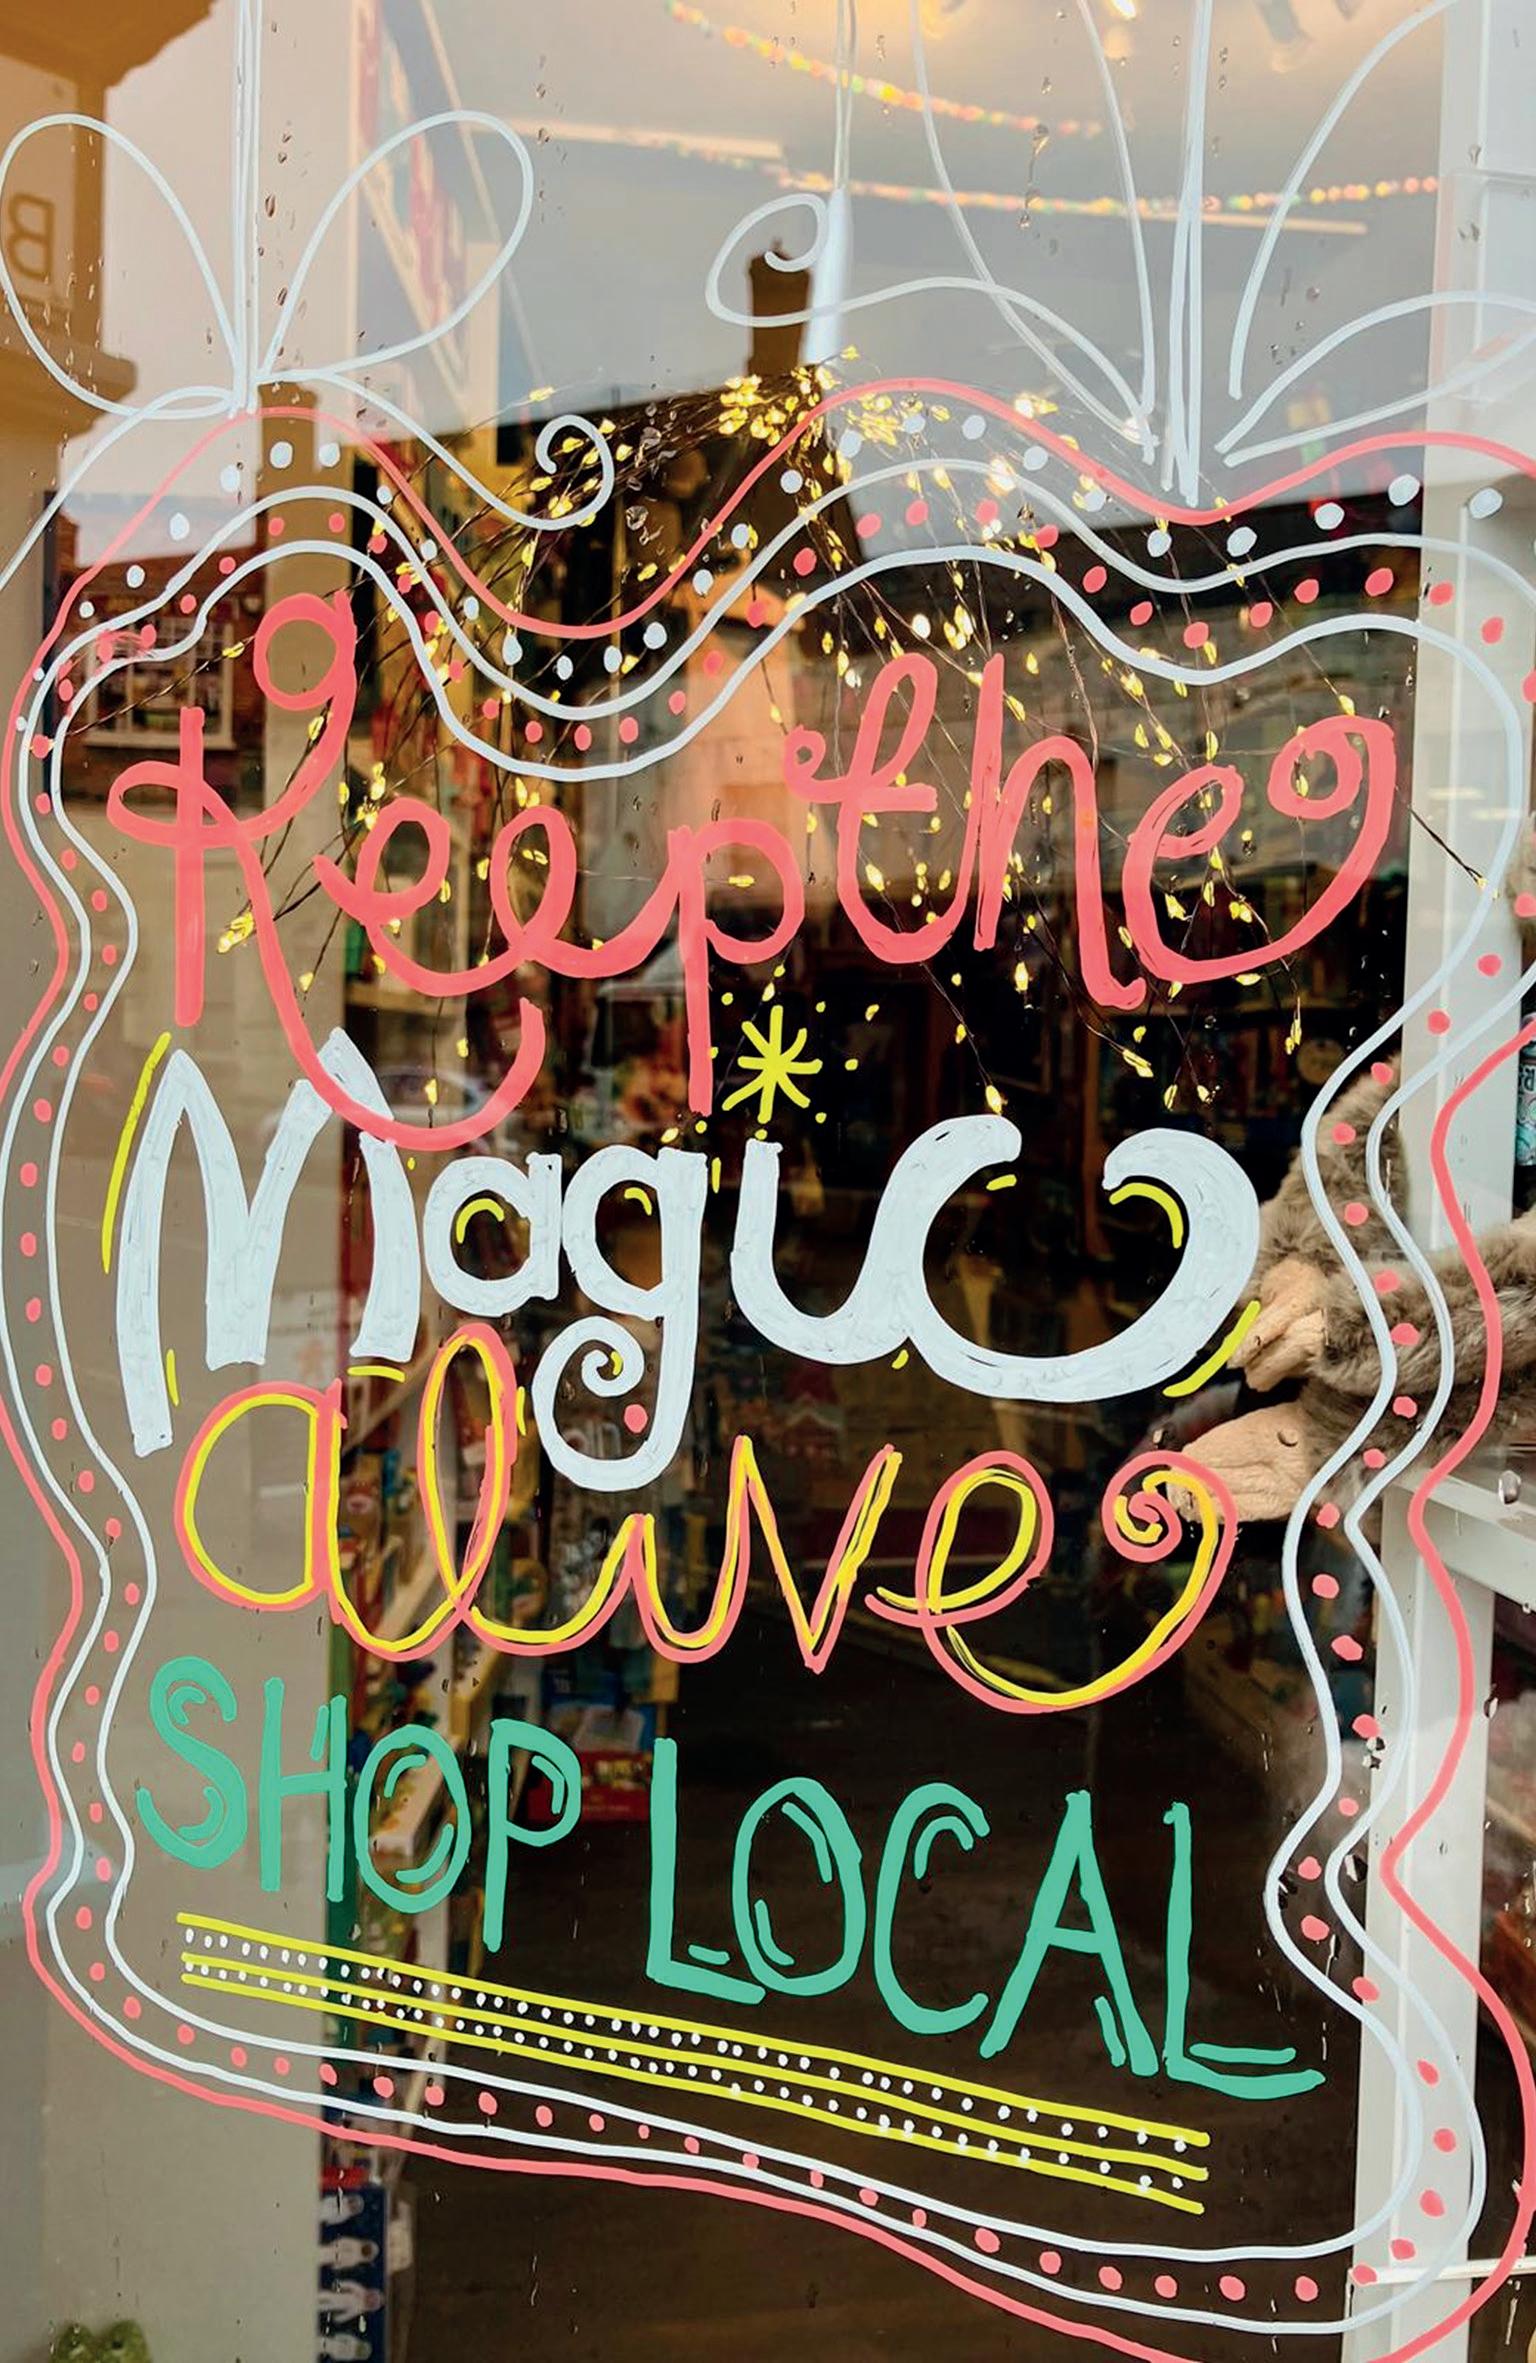 B
Keep the
Magic
alive
SHOP LOCAL